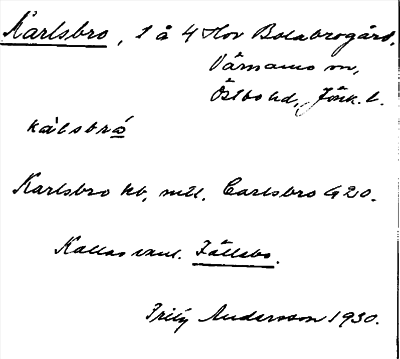 Karlsbro, 1 å 4 Hov Bolabrogård,
Värnamo sn,
Östbo hd, Jönk. l.
kàlsbró
Karlsbro hb, mtl. Carlsbro G20.
Kallas vanl. Fällsbo.
Frity Andersson 1930.